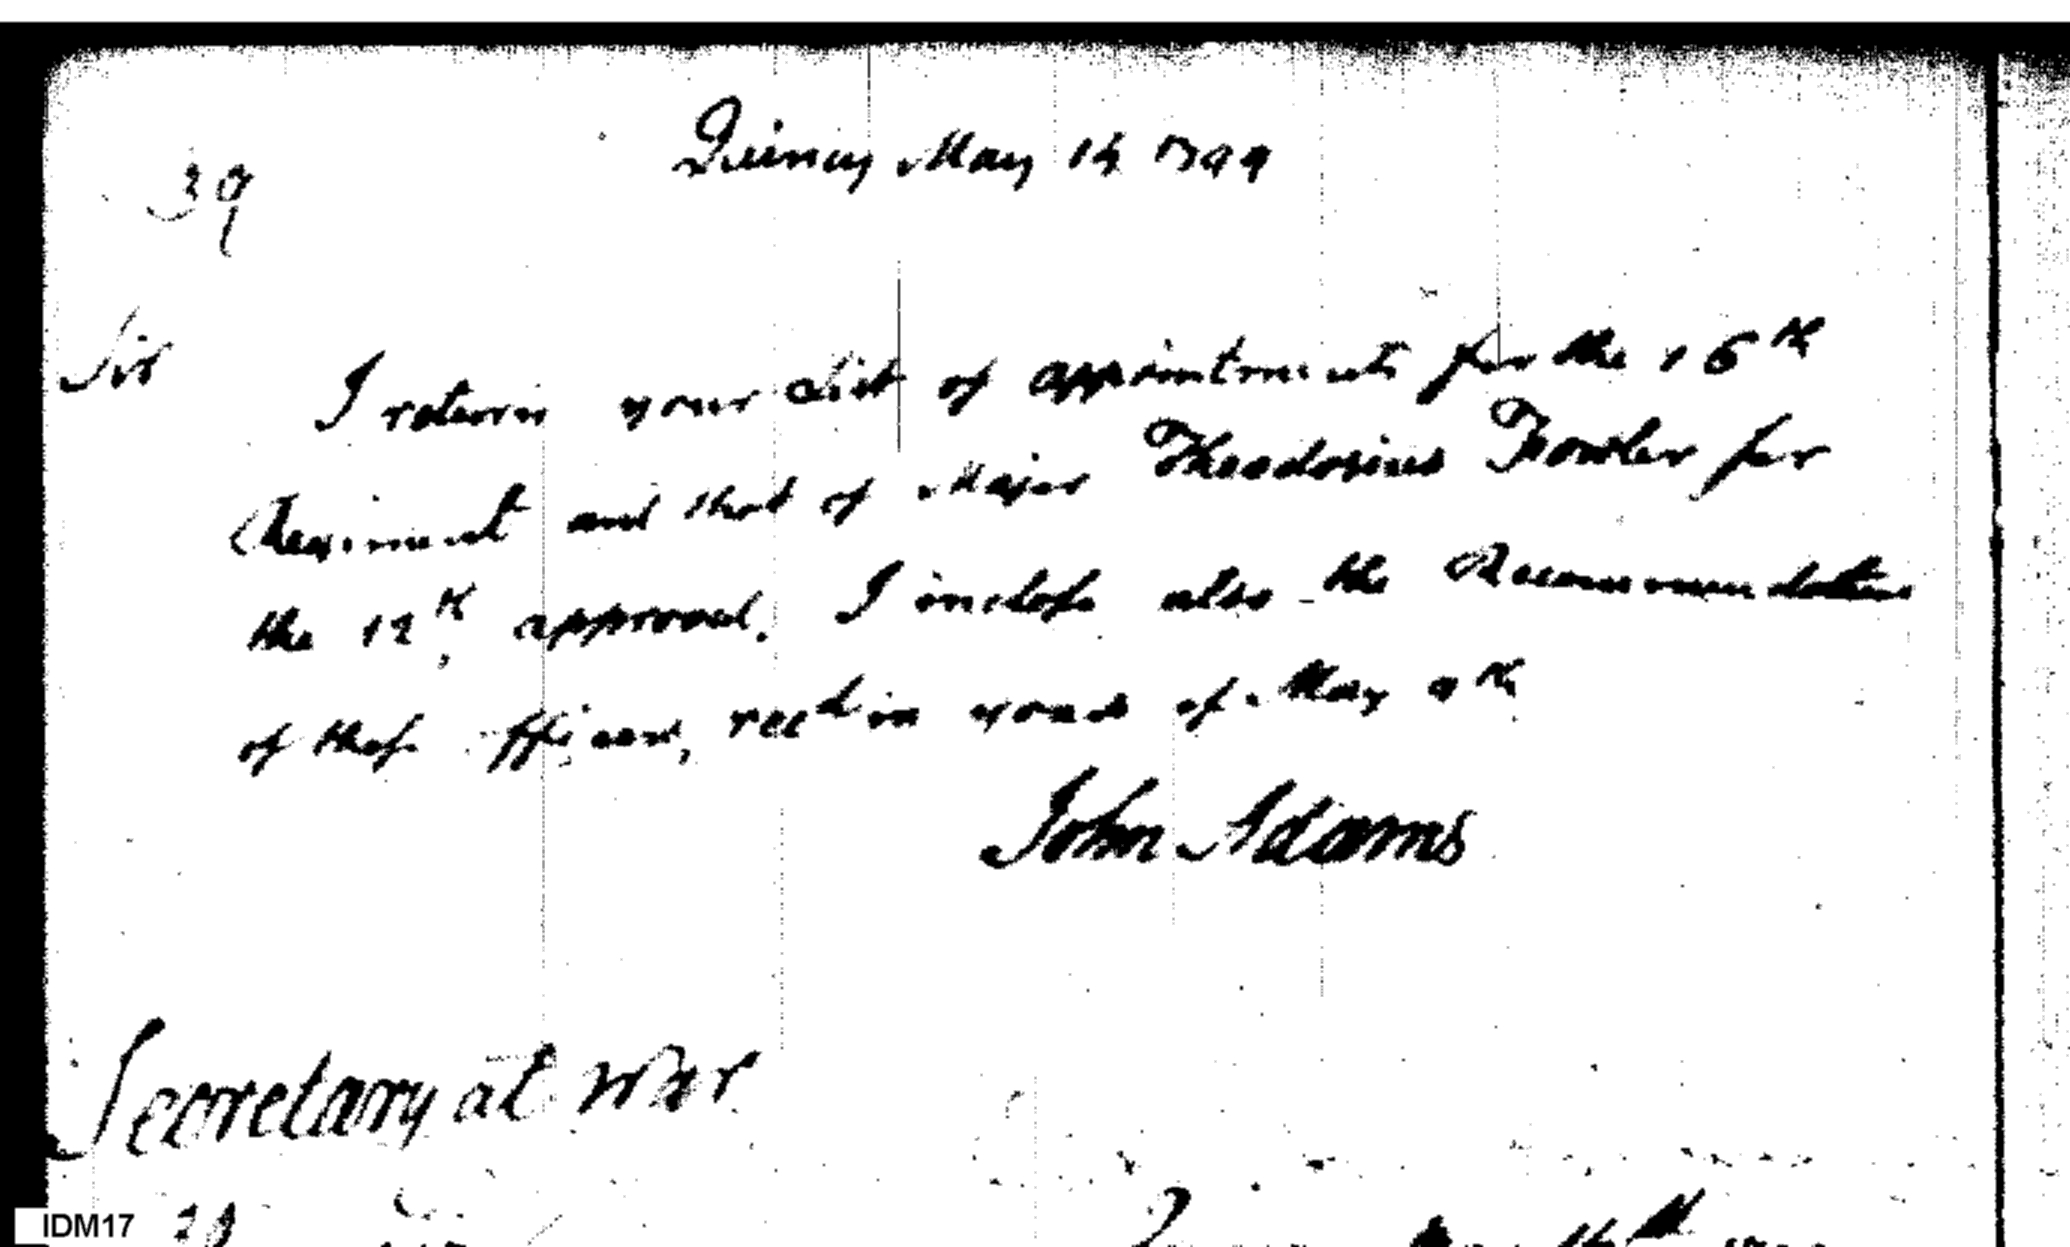 Quincy May 14 1799
39
Sir
I return your List of appointments for the 16th
Regiment and that of Major Theodosius Fowler for
the 12th, approved. I inclose also the Recommendations
of these officers, recd in yours of May 9th
John Adams
Secretary at War
IDM17